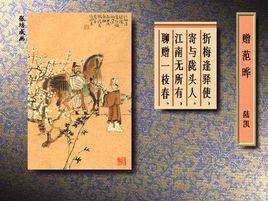 赠范晔
陆凯
折梅逢驿使，
寄与陇头人。
江南无所有，
聊赠一枝春。
张培成画